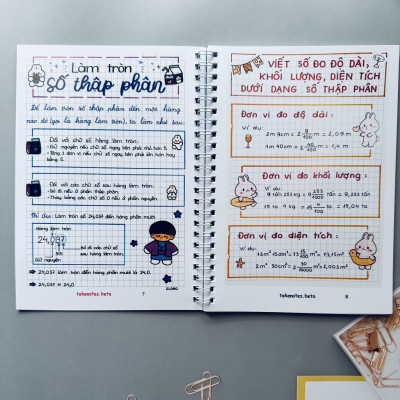 Làm tròn
Số thập phân
Để làm tròn số thập phân đến một hàng
nào đó (gọi là hàng làm tròn), ta làm như sau:
Đối với chữ số hàng làm tròn:
- Giữ nguyên nếu chữ số ngay bên phải nhỏ hơn 5.
- Tăng 1 đơn vị nếu chữ số ngay bên phải lớn hơn hay
bằng 5.
Đối với các chữ số sau hàng làm tròn:
- Bỏ đi nếu ở phần thập phân.
- Thay bằng các chữ số 0 nếu ở phần nguyên.
Thí dụ: Làm tròn số 24,037 đến hàng phần mười.
Hàng làm tròn
24,037
Bỏ đi các chữ số
sau hàng làm tròn.
Giữ nguyên
24,037 làm tròn đến hàng phần mười là 24,0.
24,037 ≈ 24,0
takenotes.beta
7
VIẾT SỐ ĐO ĐỘ DÀI,
KHỐI LƯỢNG, DIỆN TÍCH
DƯỚI DẠNG SỐ THẬP PHÂN
Đơn vị đo độ dài:
Ví dụ:
2m 9cm = 2 9/100 m = 2,09m
1m 40cm = 1 40/100 m =
Đơn vị đo khối lượng:
Ví dụ:
9 tấn 253 kg = 9 253/1000 tấn = 9,253 tấn
15 tạ 4 kg = 15 4/100 tạ = 15,04 tạ
Đơn vị đo diện tích:
Ví dụ:
73m² 15dm² = 73 15/100 m² = 73,15m²
takenotes.beta
8